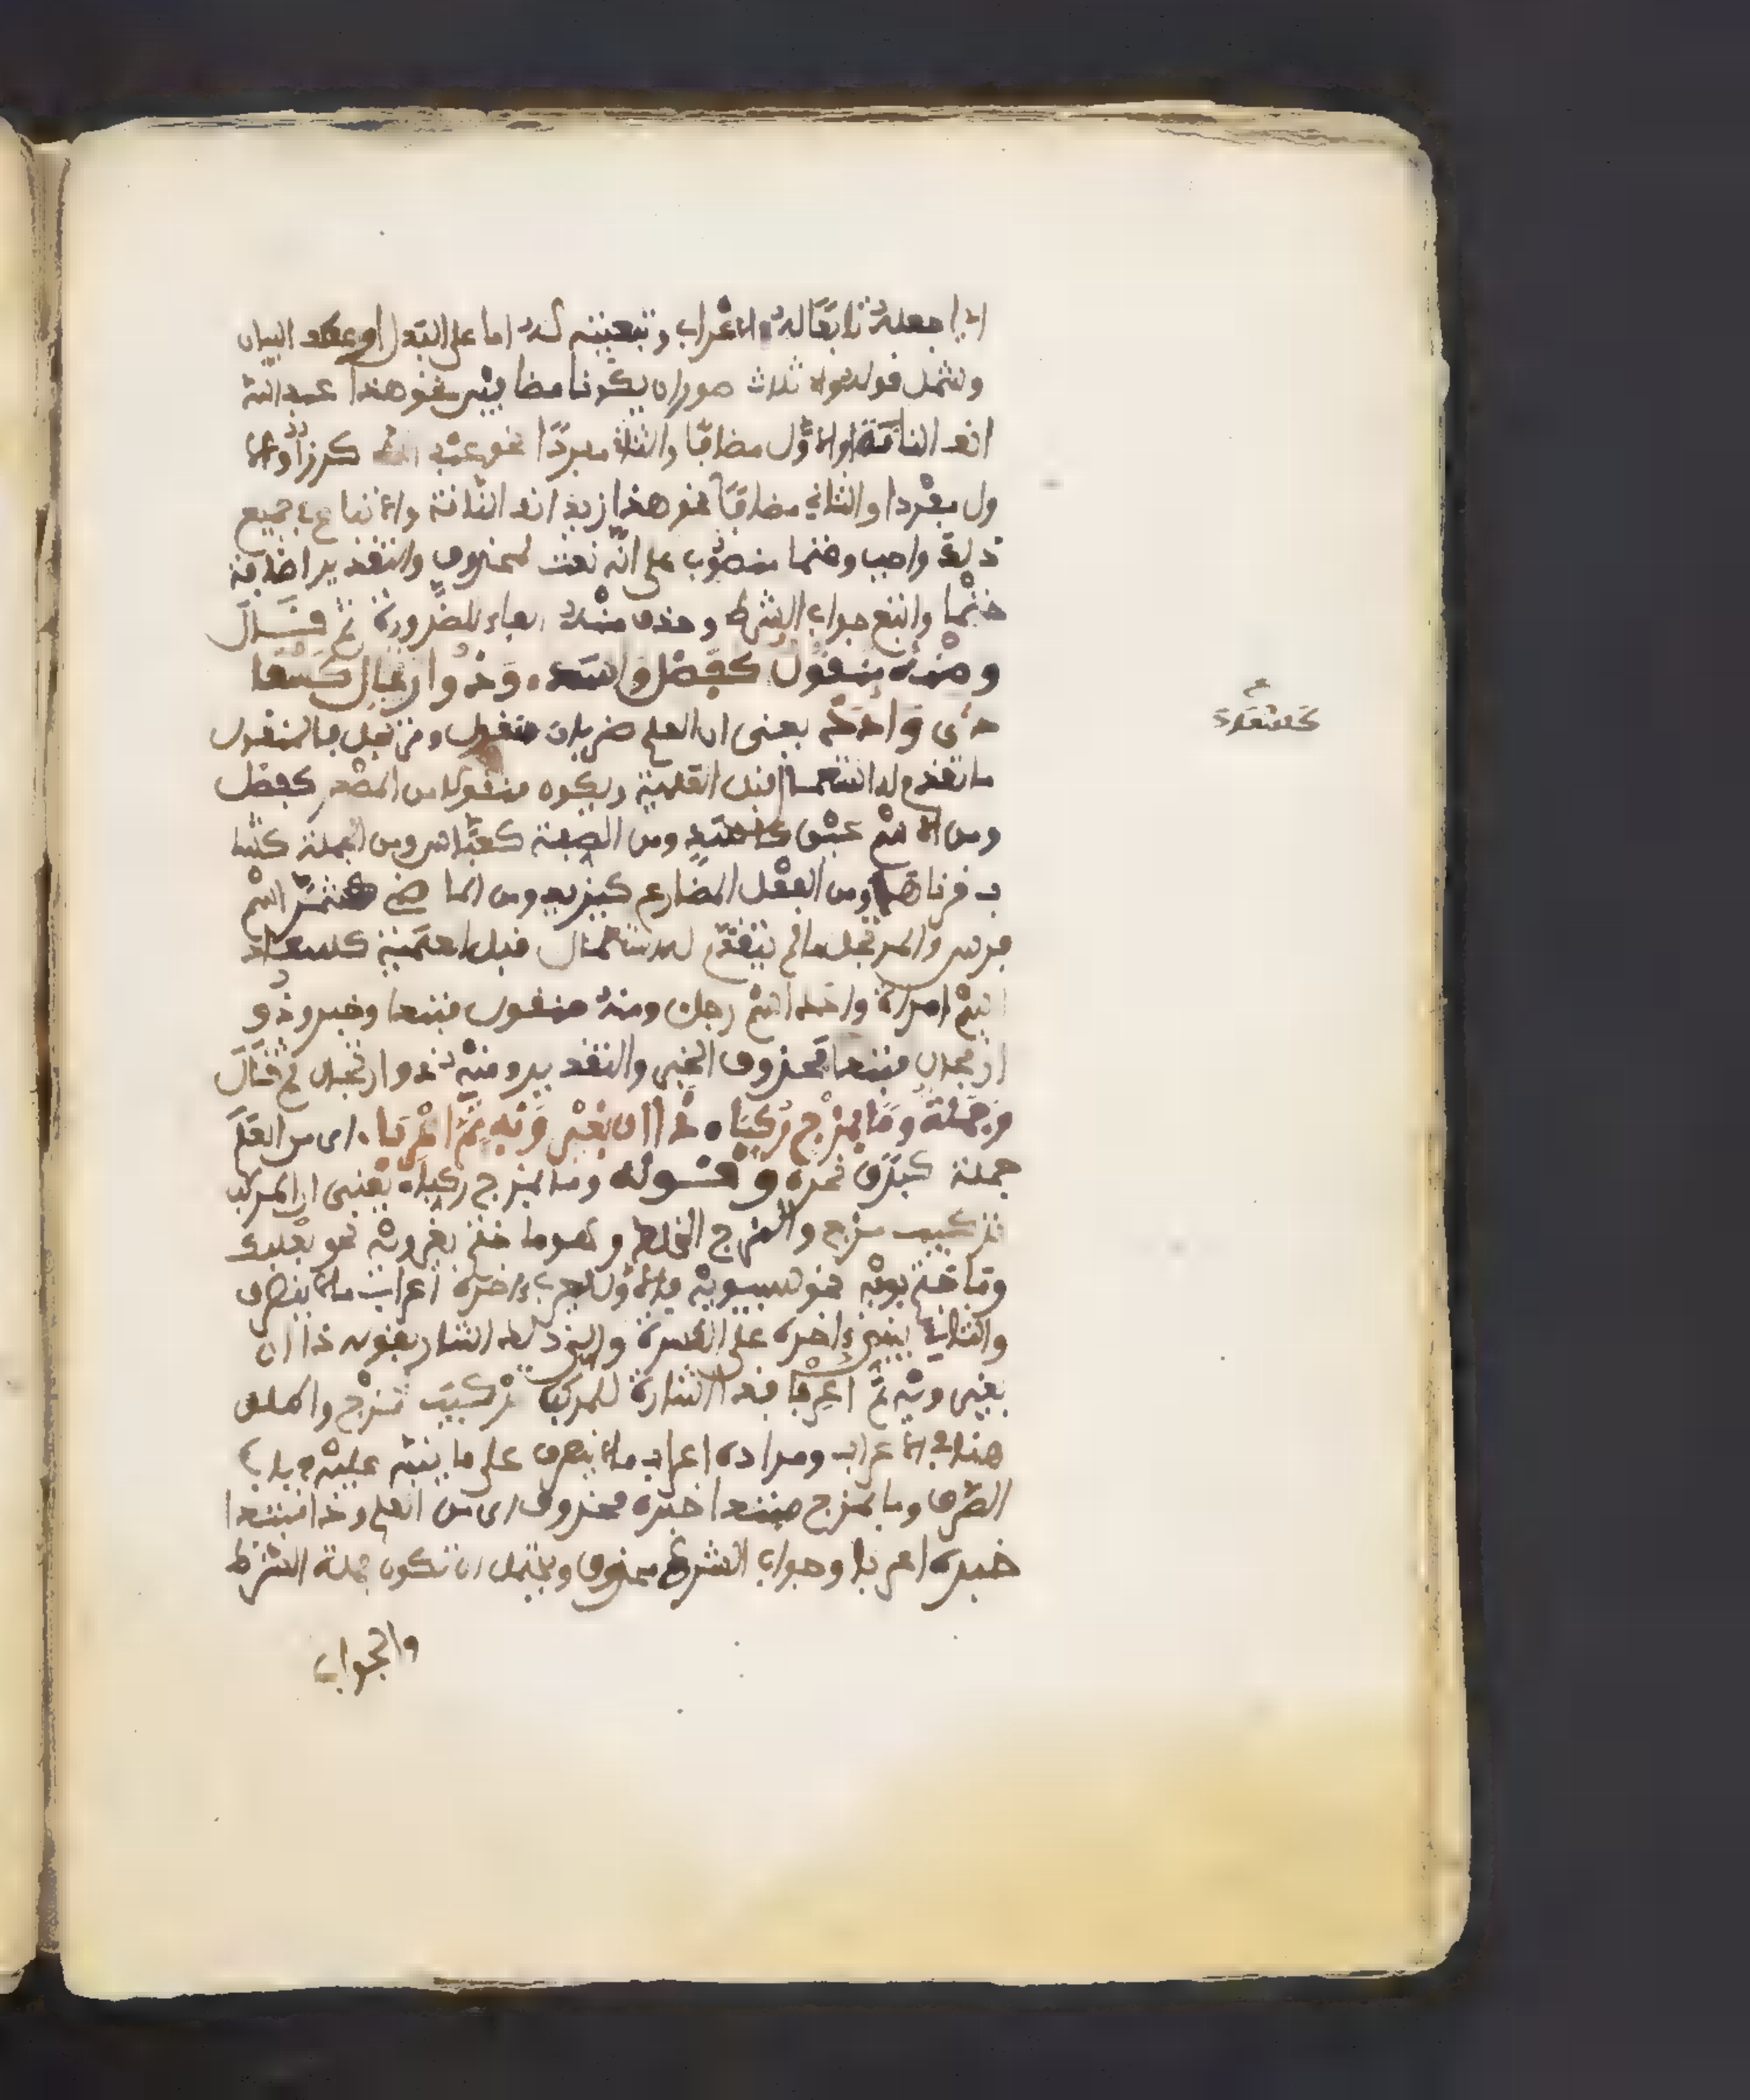 اي اجعله تابعا له في الاعراب وتبعيته له اما على البدل او عطف البيان
وشمل قوله والا ثلاث صور ان يكونا مضافين نحو هذا عبد الله
انف الناقة او الاول مضافا والثاني مفردا نحو عبد الله كرز او الا
ول مفردا والثاني مضافا نحو هذا زيد انف الناقة والاتباع في جميع
ذلك واجب وحتما منصوب على انه نعت لمحذوف والتقدير اضافة
حتما واتبع جواب الشرط وحذف منه الفاء للضرورة ثم قال
ومنه منقول كفضل واسد وذو ارتجال كسعا
د واد د يعني ان العلم ضربان منقول ومرتجل فالمنقول
ما تقدم له استعمال قبل العلمية ويكون منقولا من المصدر كفضل
ومن الاسم عين كاسد ومن الصفة كعباس ومن الجملة كشا
ب قرناها ومن الفعل المضارع كيزيد ومن الماضي كشمر اسم
فرس والمرتجل ما لم يتقدم له استعمال قبل العلمية كسعاد
اسم امراة وادد اسم رجل ومنه منقول مبتدا وخبر وذو
ارتجال مبتدا محذوف الخبر والتقدير ومنه ذو ارتجال ثم قال
وجملة وما بمزج ركبا ذا ان بغير ويه تم اعربا اي من العلم
جملة كبرق نحره وقوله وما بمزج ركبا يعني ان المركب
تركيب مزج والمزج الخلط وهو ما ختم بغير ويه نحو بعلبك
وما ختم بويه نحو سيبويه فالاول يعرب اخره اعراب ما لا ينصرف
والثاني يبنى اخره على الكسرة والى ذلك اشار بقوله ذا ان
بغير ويه تم اعربا فذا اشارة للمركب تركيب مزج واطلق
هنا في الاعراب ومراده اعراب ما لا ينصرف على ما ينبه عليه في باب
الصرف وما بمزج مبتدا خبره محذوف اي من العلم وذا مبتدا
خبره اعربا وجواب الشرط محذوف ويحتمل ان تكون جملة الشرط
والجواب